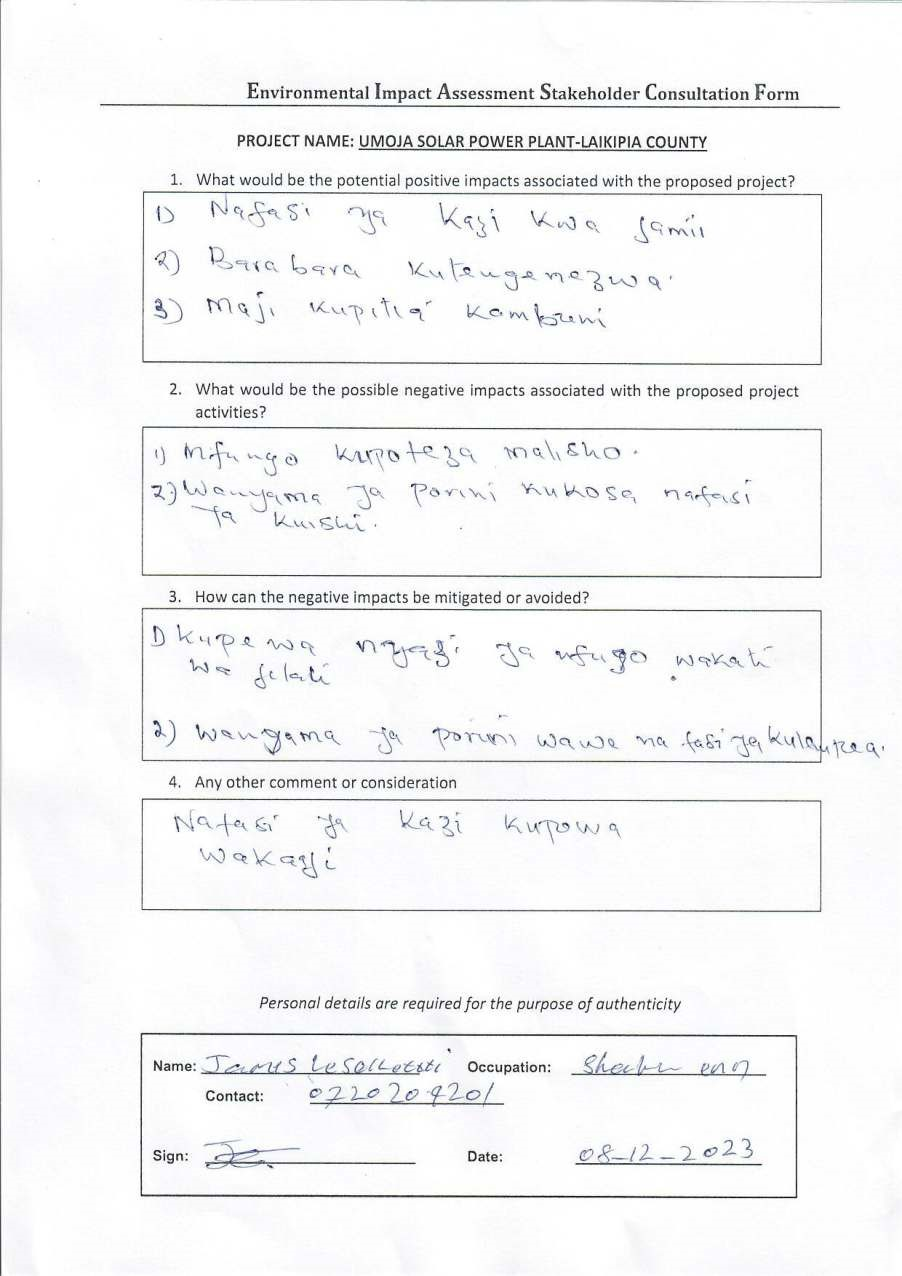 Environmental Impact Assessment Stakeholder Consultation Form
PROJECT NAME: UMOJA SOLAR POWER PLANT-LAIKIPIA COUNTY
1. What would be the potential positive impacts associated with the proposed project?
1) Nafasi ya Kazi Kwa Jamii
2) Bara bara Kutengenezwa.
3) Maji Kupitia Kampuni
2. What would be the possible negative impacts associated with the proposed project
activities?
1) Mifungo Kupoteza malisho.
2) Wanyama ya Porini Kukosa nafasi
ya Kuishi.
3. How can the negative impacts be mitigated or avoided?
1) Kupewa nyasi ya mfugo wakati
wa
2) Wanyama ya Porini wawe na fasi ya
4. Any other comment or consideration
Nafasi ya Kazi Kupewa
Wakaaji
Personal details are required for the purpose of authenticity
Name: James Occupation:
Contact: 0720209201
Sign: Date: 08-12-2023